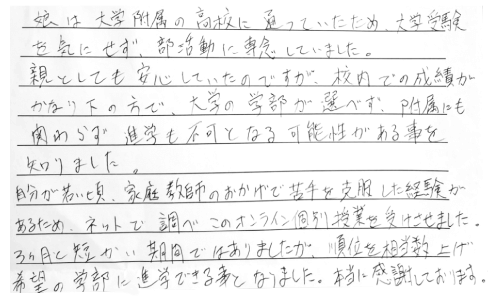 娘は大学附属の高校に通っていたため、大学受験
を気にせず、部活動に専念していました。
親としても安心していたのですが、校内での成績が
かなり下の方で、大学の学部が選べず、附属にも
関わらず進学も不可となる可能性がある事を
知りました。
自分が若い頃、家庭教師のおかげで苦手を克服した経験が
あるため、ネットで調べこのオンライン個別授業を受けさせました。
3ヶ月と短かい期間ではありましたが、順位を相当数上げ
希望の学部に進学できる事となりました。本当に感謝しております。